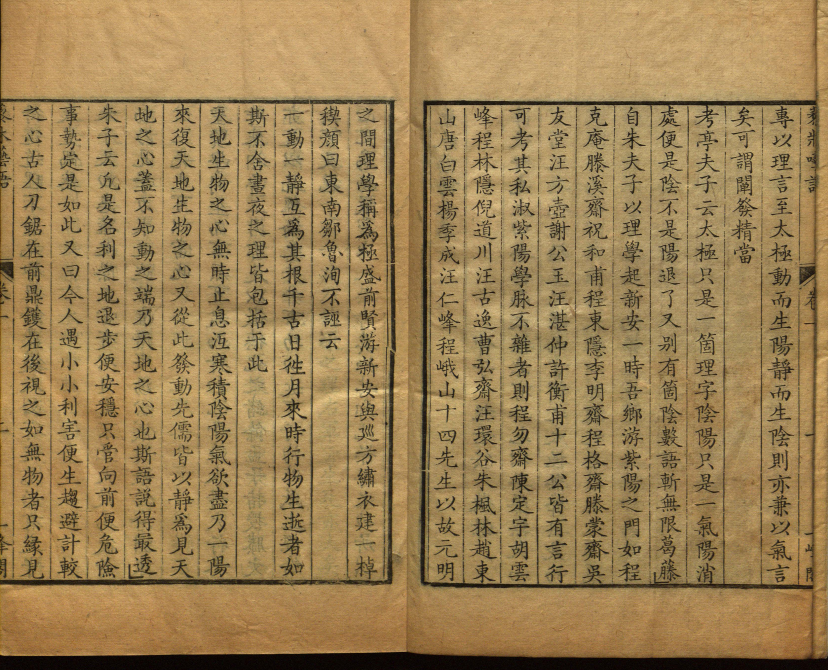 專以理言至太極動而生陽靜而生陰則亦兼以氣言
矣可謂闡發精當
考亭夫子云太極只是一箇理字陰陽只是一氣陽消
處便是陰不是陽退了又別有箇陰數語斬無限葛藤
自朱夫子以理學起新安一時吾鄉游紫陽之門如程
克庵滕溪齋祝和甫程東隱李明齋程格齋滕蒙齋吳
友堂汪方壺謝公玉汪湛仲許衡甫十二公皆有言行
可考其私淑紫陽學脉不雜者則程勿齋陳定宇胡雲
峰程林隱倪道川汪古逸曹弘齋汪環谷朱楓林趙東
山唐白雲楊季成汪仁峰程峨山十四先生以故元明
之間理學稱爲極盛前賢游新安與巡方繡衣建一棹
楔顏曰東南鄒魯洵不誣云
一動一靜互爲其根千古日徃月來時行物生逝者如
斯不舍晝夜之理皆包括于此
天地生物之心無時止息沍寒積陰陽氣欲盡乃一陽
來復天地生物之心又從此發動先儒皆以靜爲見天
地之心蓋不知動之端乃天地之心也斯語說得最透
朱子云凢是名利之地退步便安穩只管向前便危險
事勢定是如此又曰今人遇小小利害便生趨避計較
之心古人刀鋸在前鼎鑊在後視之如無物者只緣見